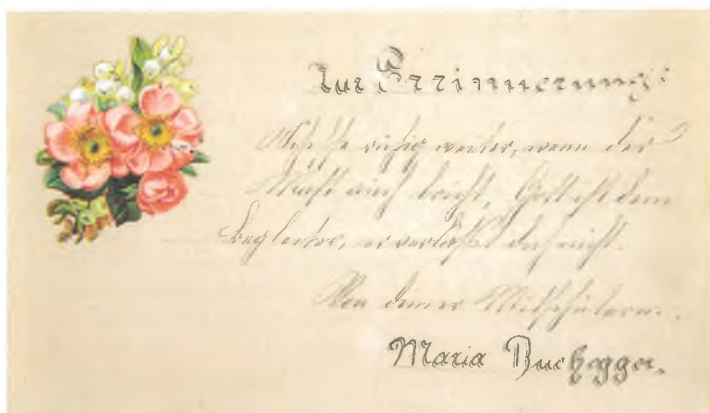 Zur Errinnerung:
Schiffe ruhig weiter, wenn der
Mast auch bricht, Gott ist dein
Begleiter, er verläßt dich nicht.
Von deiner Mitschülerin.
Maria Buchegger.